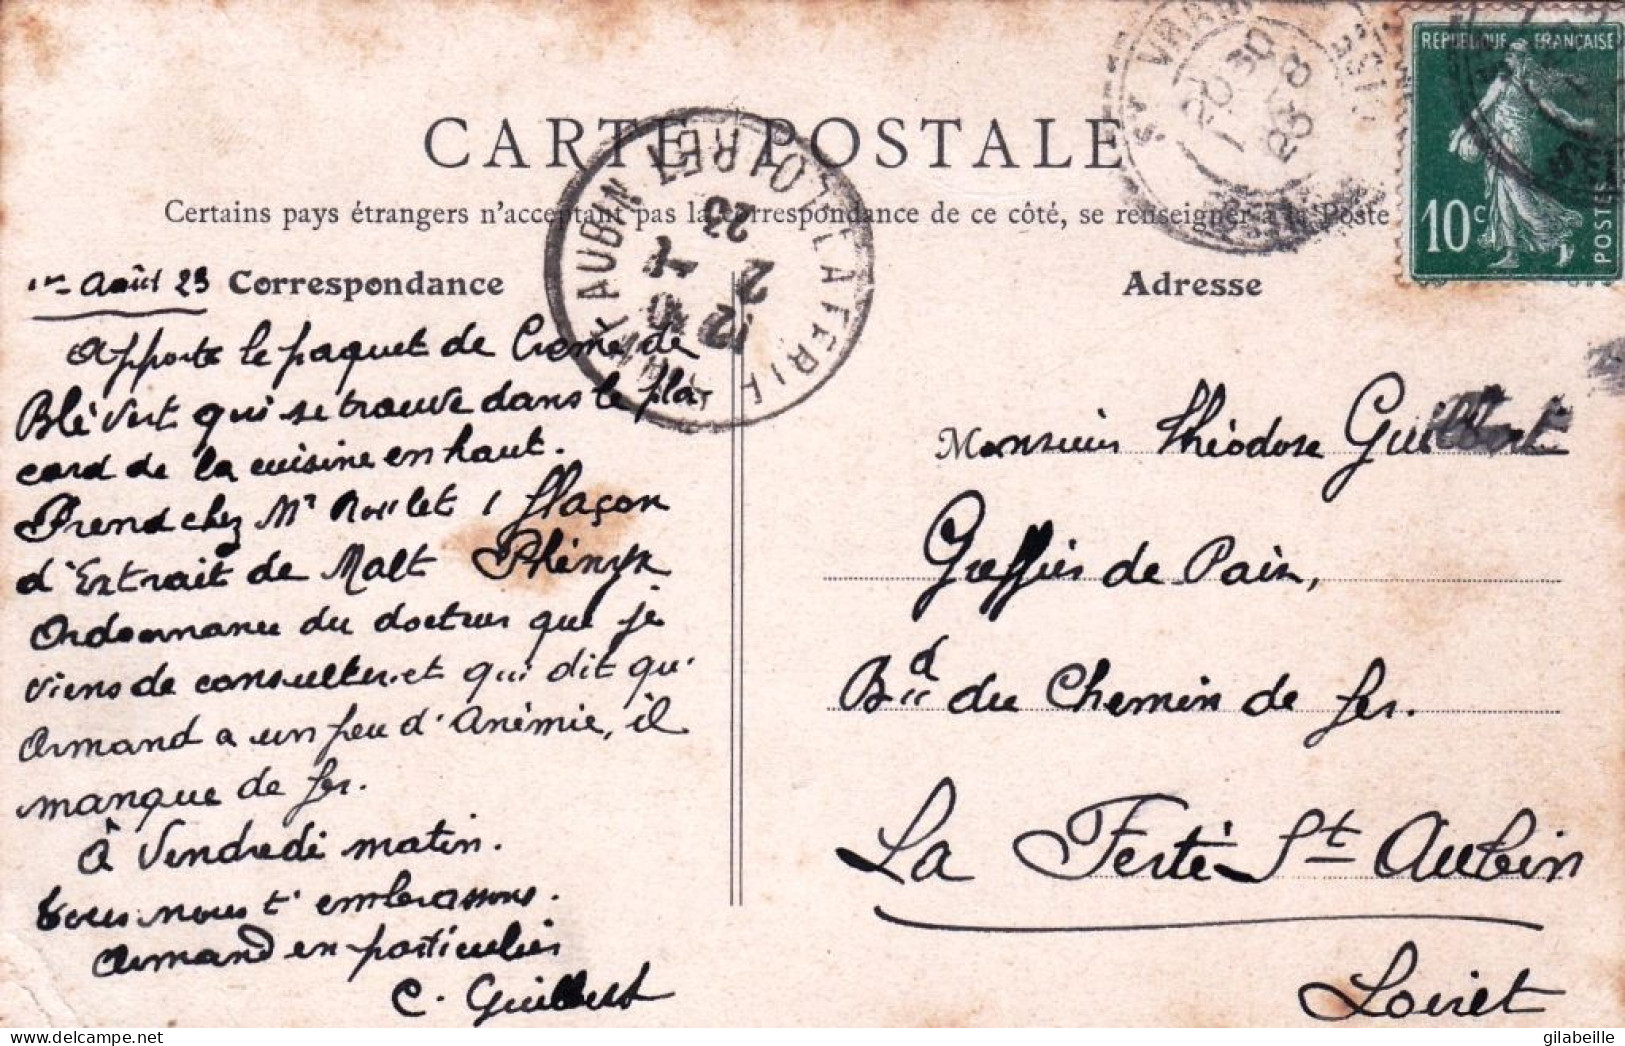 CARTE POSTALE
Certains pays étrangers n'acceptent pas la correspondance de ce côté, se renseigner à la Poste
REPUBLIQUE FRANÇAISE
10c
POSTES
LA FERTE ST AUBIN LOIRET
12
2
23
1er Août 23 Correspondance
Apporte le paquet de Creme de
Blé Vert qui se trouve dans le pla-
card de la cuisine en haut.
Prend chez Mr 1 flaçon
d'Extrait de Malt
Ordonnance du docteur que je
viens de consulter et qui dit qu'
Armand a un peu d'Anémie, il
manque de fer.
À Vendredi matin.
tous nous t'embrassons.
Armand en particulier
C. Guilbert
Adresse
Monsieur Théodore Guilbert
Greffier de Paix,
Bd du Chemin de fer.
La Ferté St Aubin
Loiret
gilabeille